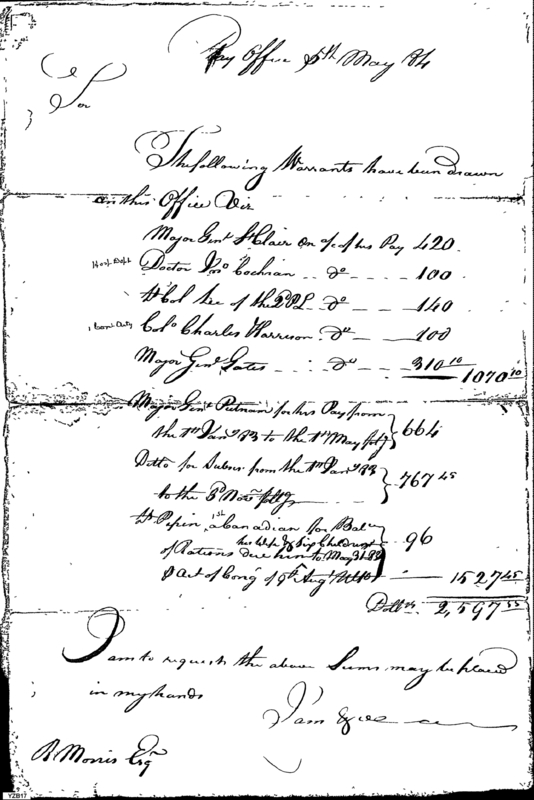 Pay Office 5th May 84
Sir
The following Warrants have been drawn
on this Office Viz
Major Genl St Clair on a/c of his Pay 420
Hosp. Dept Doctor Jno Cochran do 100
Lt Col Lee of the 2d P L do 140
Colo Charles Harrison do 100
Major Genl Gates do 310 10 1070 10
Major Genl Putnam for his Pay from
the 1st Jany 83 to the 1st May folg 664
Ditto for Subsn from the 1st Jany 83 767 45
to the 3d Novr follg
Lt Pepin, a Canadian for Bale 96
his Wife & Six Children
of Rations due him to May 31 82
Act of Cong of 9th Augt 1527 45
Dollrs 2,597 55
I am to request the above Sums may be placed
in my hands
I am &ca
R Morris Esqr
YZB17